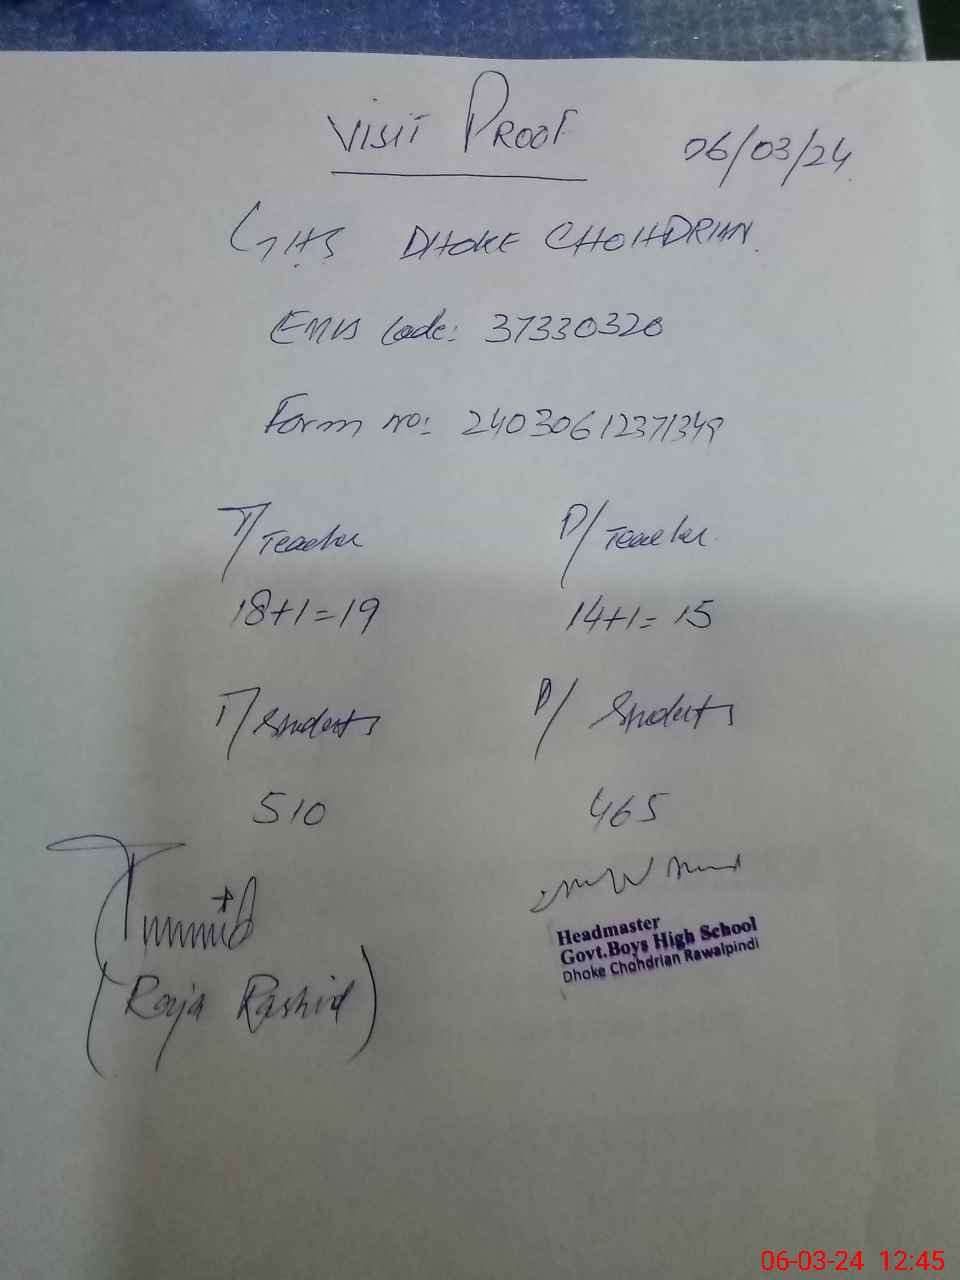 VISIT PROOF 06/03/24
GHS DHOKE CHOHDRIAN.
EMIS Code: 37330320
Form no: 24030612371349
T/Teacher P/Teacher
18+1=19 14+1=15
T/Students P/Students
510 465
Headmaster
Govt.Boys High School
Dhoke Chohdrian Rawalpindi
(Raja Rashid)
06-03-24 12:45